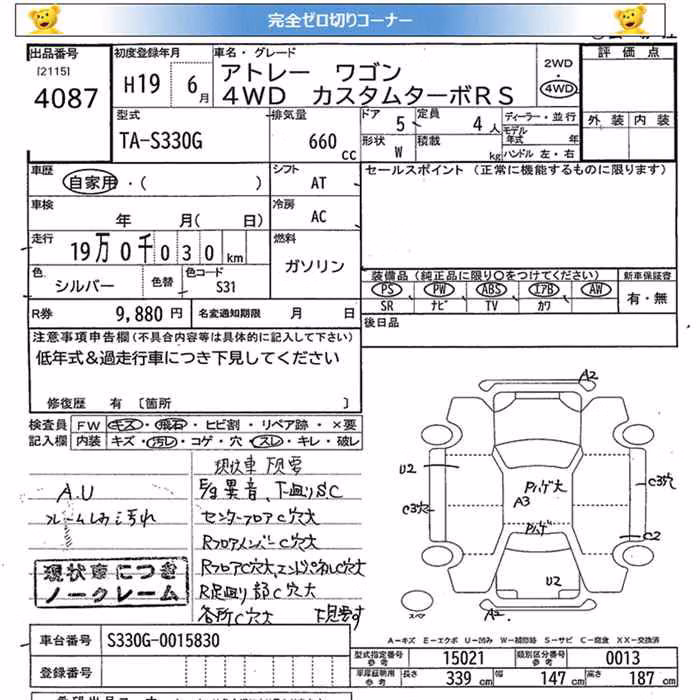 完全ゼロ切りコーナー
出品番号
[2115]
4087
初度登録年月
H19 6月
車名・グレード
アトレー ワゴン
4WD カスタムターボRS
2WD
4WD
評価点
外装 内装
型式
TA-S330G
排気量
660 cc
ドア 5
定員 4 人
形状 W
積載 kg
ディーラー・並行
モデル年式 年
ハンドル 左・右
車歴
自家用・( )
シフト
AT
セールスポイント (正常に機能するものに限ります)
車検
年 月( 日)
冷房
AC
走行
19万0千030km
燃料
ガソリン
色
シルバー
色替
色コード
S31
装備品(純正品に限り○をつけてください)
新車保証書
PS PW ABS エアB AW
SR ナビ TV カワ
有・無
R券
9,880 円
名変通知期限 月 日
後日品
注意事項申告欄(不具合内容等は具体的に記入して下さい)
低年式&過走行車につき下見してください
修復歴 有 〔箇所 〕
検査員記入欄
FW キズ・飛石・ヒビ割・リペア跡・×要
内装 キズ・汚レ・コゲ・穴・スレ・キレ・破レ
現状車 下見要
A.U
E/g異音、下廻りSC
フレームしみ汚れ
センターフロアC穴大
RフロアメンバーC穴大
RフロアC穴大、エンドパネルC穴大
R足廻り部C穴大
各所C穴大 下見要す
現状車につき
ノークレーム
A2
U2
C3穴
A3
Pハゲ大
Pハゲ
C3穴
C2
U2
A2
スペア
A−キズ E−エクボ U−凹み W−補修跡 S−サビ C−腐食 XX−交換済
車台番号
S330G-0015830
登録番号
型式指定番号 参考
15021
類別区分番号 参考
0013
参考
長さ 339 cm
幅 147 cm
高さ 187 cm